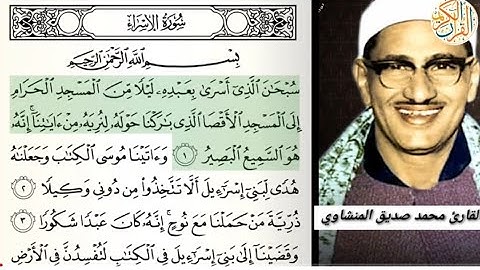 سُورَةُ الإِسْرَاءِ
بِسْمِ ٱللَّهِ ٱلرَّحْمَٰنِ ٱلرَّحِيمِ
سُبْحَٰنَ ٱلَّذِىٓ أَسْرَىٰ بِعَبْدِهِۦ لَيْلًا مِّنَ ٱلْمَسْجِدِ ٱلْحَرَامِ
إِلَى ٱلْمَسْجِدِ ٱلْأَقْصَا ٱلَّذِى بَٰرَكْنَا حَوْلَهُۥ لِنُرِيَهُۥ مِنْ ءَايَٰتِنَآ ۚ إِنَّهُۥ
هُوَ ٱلسَّمِيعُ ٱلْبَصِيرُ ١ وَءَاتَيْنَا مُوسَى ٱلْكِتَٰبَ وَجَعَلْنَٰهُ
هُدًى لِّبَنِىٓ إِسْرَٰٓءِيلَ أَلَّا تَتَّخِذُوا۟ مِن دُونِى وَكِيلًا ٢
ذُرِّيَّةَ مَنْ حَمَلْنَا مَعَ نُوحٍ ۚ إِنَّهُۥ كَانَ عَبْدًا شَكُورًا ٣
وَقَضَيْنَآ إِلَىٰ بَنِىٓ إِسْرَٰٓءِيلَ فِى ٱلْكِتَٰبِ لَتُفْسِدُنَّ فِى ٱلْأَرْضِ
القرآن الكريم
لقارئ محمد صديق المنشاوي